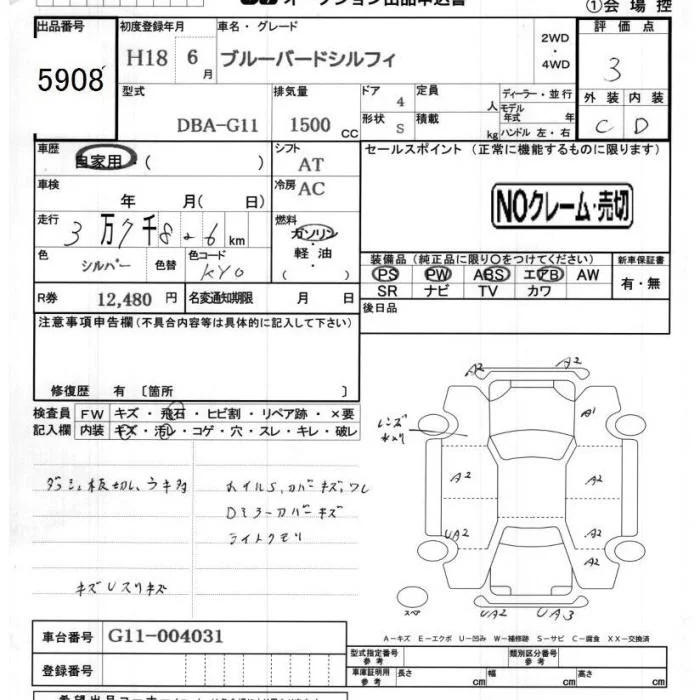 オークション出品申込書
①会場控
出品番号 初度登録年月 車名・グレード 2WD・4WD 評価点
5908 H18 6月 ブルーバードシルフィ 3
型式 排気量 ドア 4 定員 人 ディーラー・並行 外装 内装
DBA-G11 1500 CC 形状 S 積載 kg モデル年式 年 C D
ハンドル 左・右
車歴 自家用・( ) シフト AT セールスポイント (正常に機能するものに限ります)
車検 年 月( 日) 冷房 AC
NOクレーム・売切
走行 3万7千826km 燃料 ガソリン・軽油・( )
色 シルバー 色替 色コード KY0
装備品(純正品に限り○をつけてください) 新車保証書
PS PW ABS エアB AW 有・無
SR ナビ TV カワ
R券 12,480円 名変通知期限 月 日 後日品
注意事項申告欄(不具合内容等は具体的に記入して下さい)
修復歴 有〔箇所 〕
検査員 FW キズ・飛石・ヒビ割・リペア跡・×要
記入欄 内装 キズ・汚レ・コゲ・穴・スレ・キレ・破レ
レンズ
A2 A2
A1
A2 A2
UA2 A2
A2
UA2 UA3
スペア
ダッシュ板切レ、ウキ多 ホイルS、カバーキズ、ワレ
Dミラーカバーキズ
ライトクモリ
キズUスリキズ
A-キズ E-エクボ U-凹み W-補修跡 S-サビ C-腐食 XX-交換済
車台番号 G11-004031
型式指定番号 参考 類別区分番号 参考
登録番号
車庫証明用 参考 長さ cm 幅 cm 高さ cm